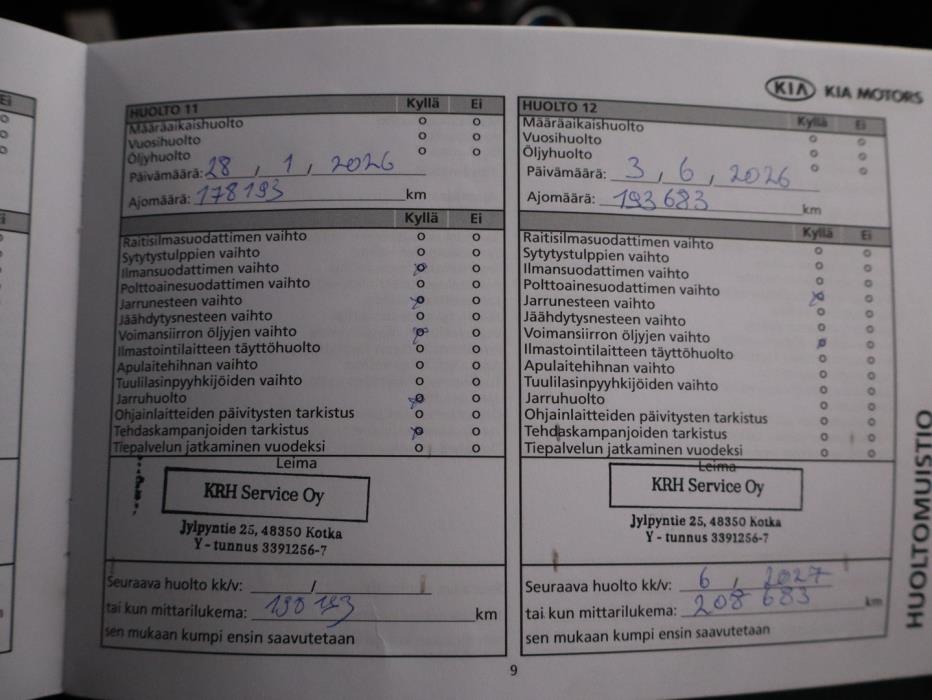 KIA KIA MOTORS
HUOLTO 11 Kyllä Ei
Määräaikaishuolto o o
Vuosihuolto o o
Öljyhuolto o o
Päivämäärä: 28 , 1 , 2026
Ajomäärä: 178193 km
Kyllä Ei
Raitisilmasuodattimen vaihto o o
Sytytystulppien vaihto o o
Ilmansuodattimen vaihto o o
Polttoainesuodattimen vaihto o o
Jarrunesteen vaihto o o
Jäähdytysnesteen vaihto o o
Voimansiirron öljyjen vaihto o o
Ilmastointilaitteen täyttöhuolto o o
Apulaitehihnan vaihto o o
Tuulilasinpyyhkijöiden vaihto o o
Jarruhuolto o o
Ohjainlaitteiden päivitysten tarkistus o o
Tehdaskampanjoiden tarkistus o o
Tiepalvelun jatkaminen vuodeksi o o
Leima
KRH Service Oy
Jylpyntie 25, 48350 Kotka
Y - tunnus 3391256-7
Seuraava huolto kk/v: /
tai kun mittarilukema: 190193 km
sen mukaan kumpi ensin saavutetaan
HUOLTO 12 Kyllä Ei
Määräaikaishuolto o o
Vuosihuolto o o
Öljyhuolto o o
Päivämäärä: 3 , 6 , 2026
Ajomäärä: 193683 km
Kyllä Ei
Raitisilmasuodattimen vaihto o o
Sytytystulppien vaihto o o
Ilmansuodattimen vaihto o o
Polttoainesuodattimen vaihto o o
Jarrunesteen vaihto o o
Jäähdytysnesteen vaihto o o
Voimansiirron öljyjen vaihto o o
Ilmastointilaitteen täyttöhuolto o o
Apulaitehihnan vaihto o o
Tuulilasinpyyhkijöiden vaihto o o
Jarruhuolto o o
Ohjainlaitteiden päivitysten tarkistus o o
Tehdaskampanjoiden tarkistus o o
Tiepalvelun jatkaminen vuodeksi o o
Leima
KRH Service Oy
Jylpyntie 25, 48350 Kotka
Y - tunnus 3391256-7
Seuraava huolto kk/v: 6 , 2027
tai kun mittarilukema: 208 683 km
sen mukaan kumpi ensin saavutetaan
HUOLTOMUISTIO
9
Ei